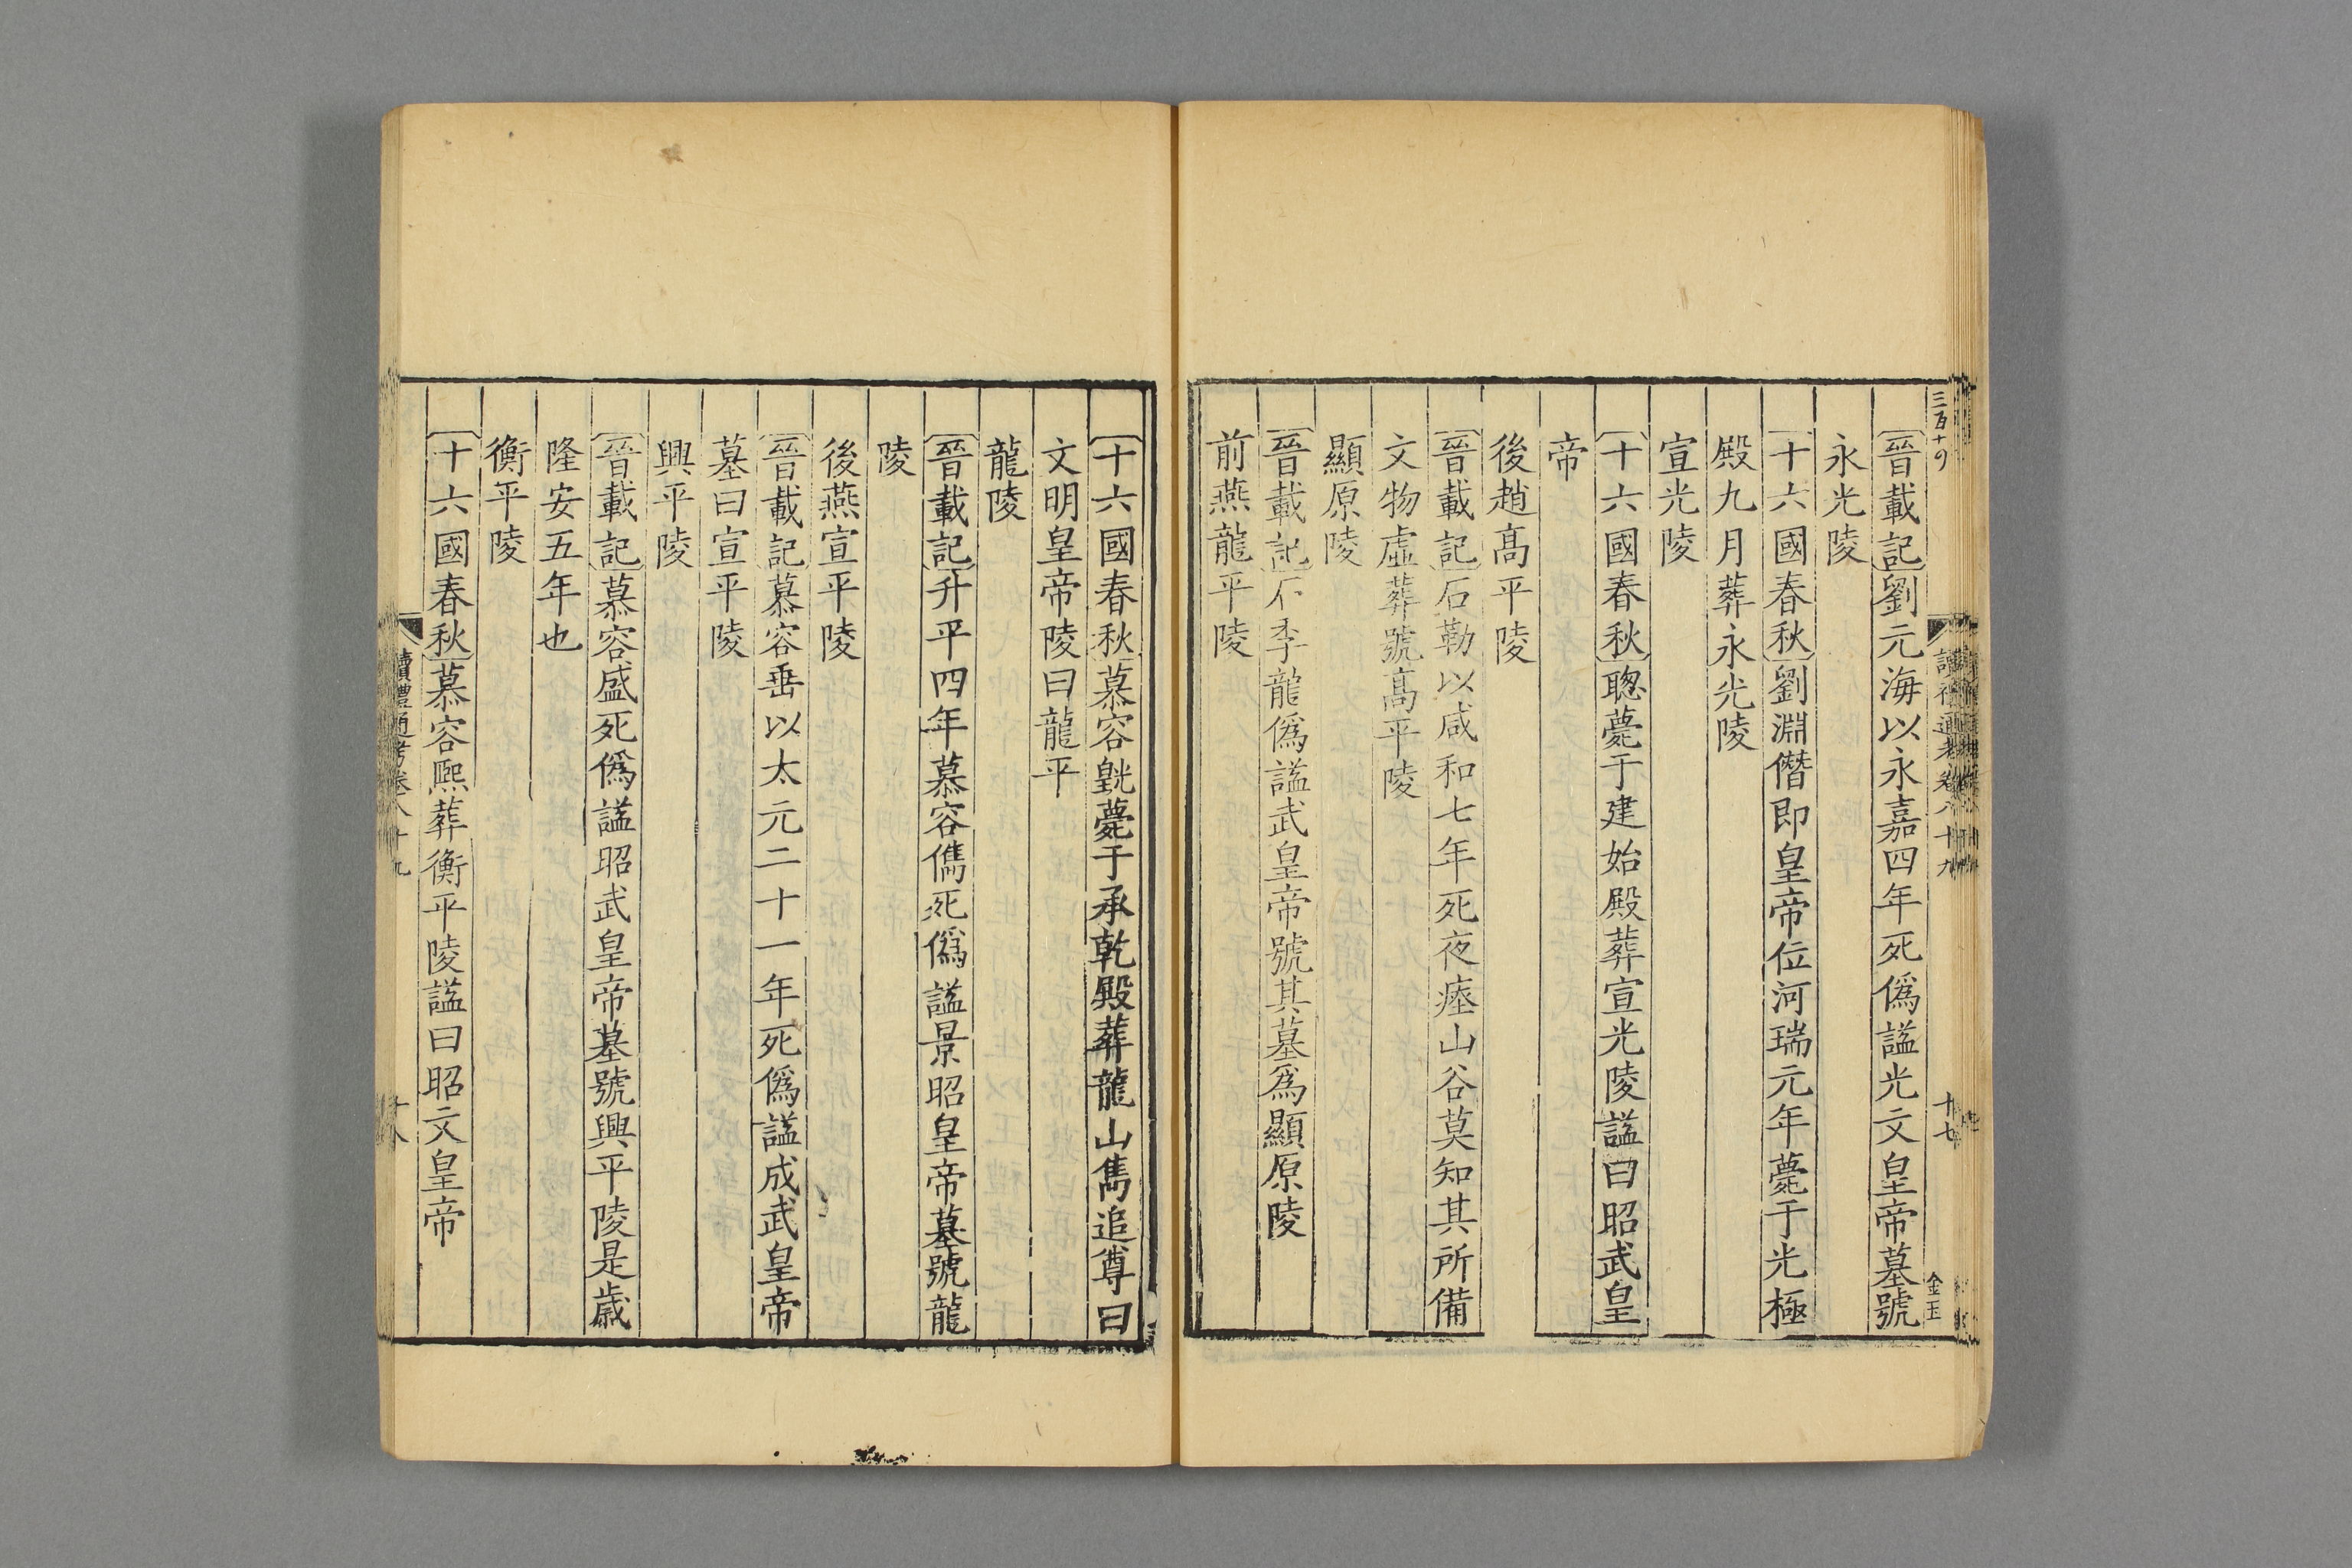 三百十四
讀禮通考卷八十九
十七
金玉
晉載記劉元海以永嘉四年死僞謚光文皇帝墓號
永光陵
十六國春秋劉淵僭即皇帝位河瑞元年薨于光極
殿九月葬永光陵
宣光陵
十六國春秋聰薨于建始殿葬宣光陵謚曰昭武皇
帝
後趙髙平陵
晉載記石勒以咸和七年死夜瘞山谷莫知其所備
文物虛葬號髙平陵
顯原陵
晉載記石季龍僞謚武皇帝號其墓爲顯原陵
前燕龍平陵
十六國春秋慕容皝薨于承乾殿葬龍山雋追尊曰
文明皇帝陵曰龍平
龍陵
晉載記升平四年慕容儁死僞謚景昭皇帝墓號龍
陵
後燕宣平陵
晉載記慕容垂以太元二十一年死僞謚成武皇帝
墓曰宣平陵
興平陵
晉載記慕容盛死僞謚昭武皇帝墓號興平陵是歲
隆安五年也
衡平陵
十六國春秋慕容熙葬衡平陵謚曰昭文皇帝
讀禮通考卷八十九
十八